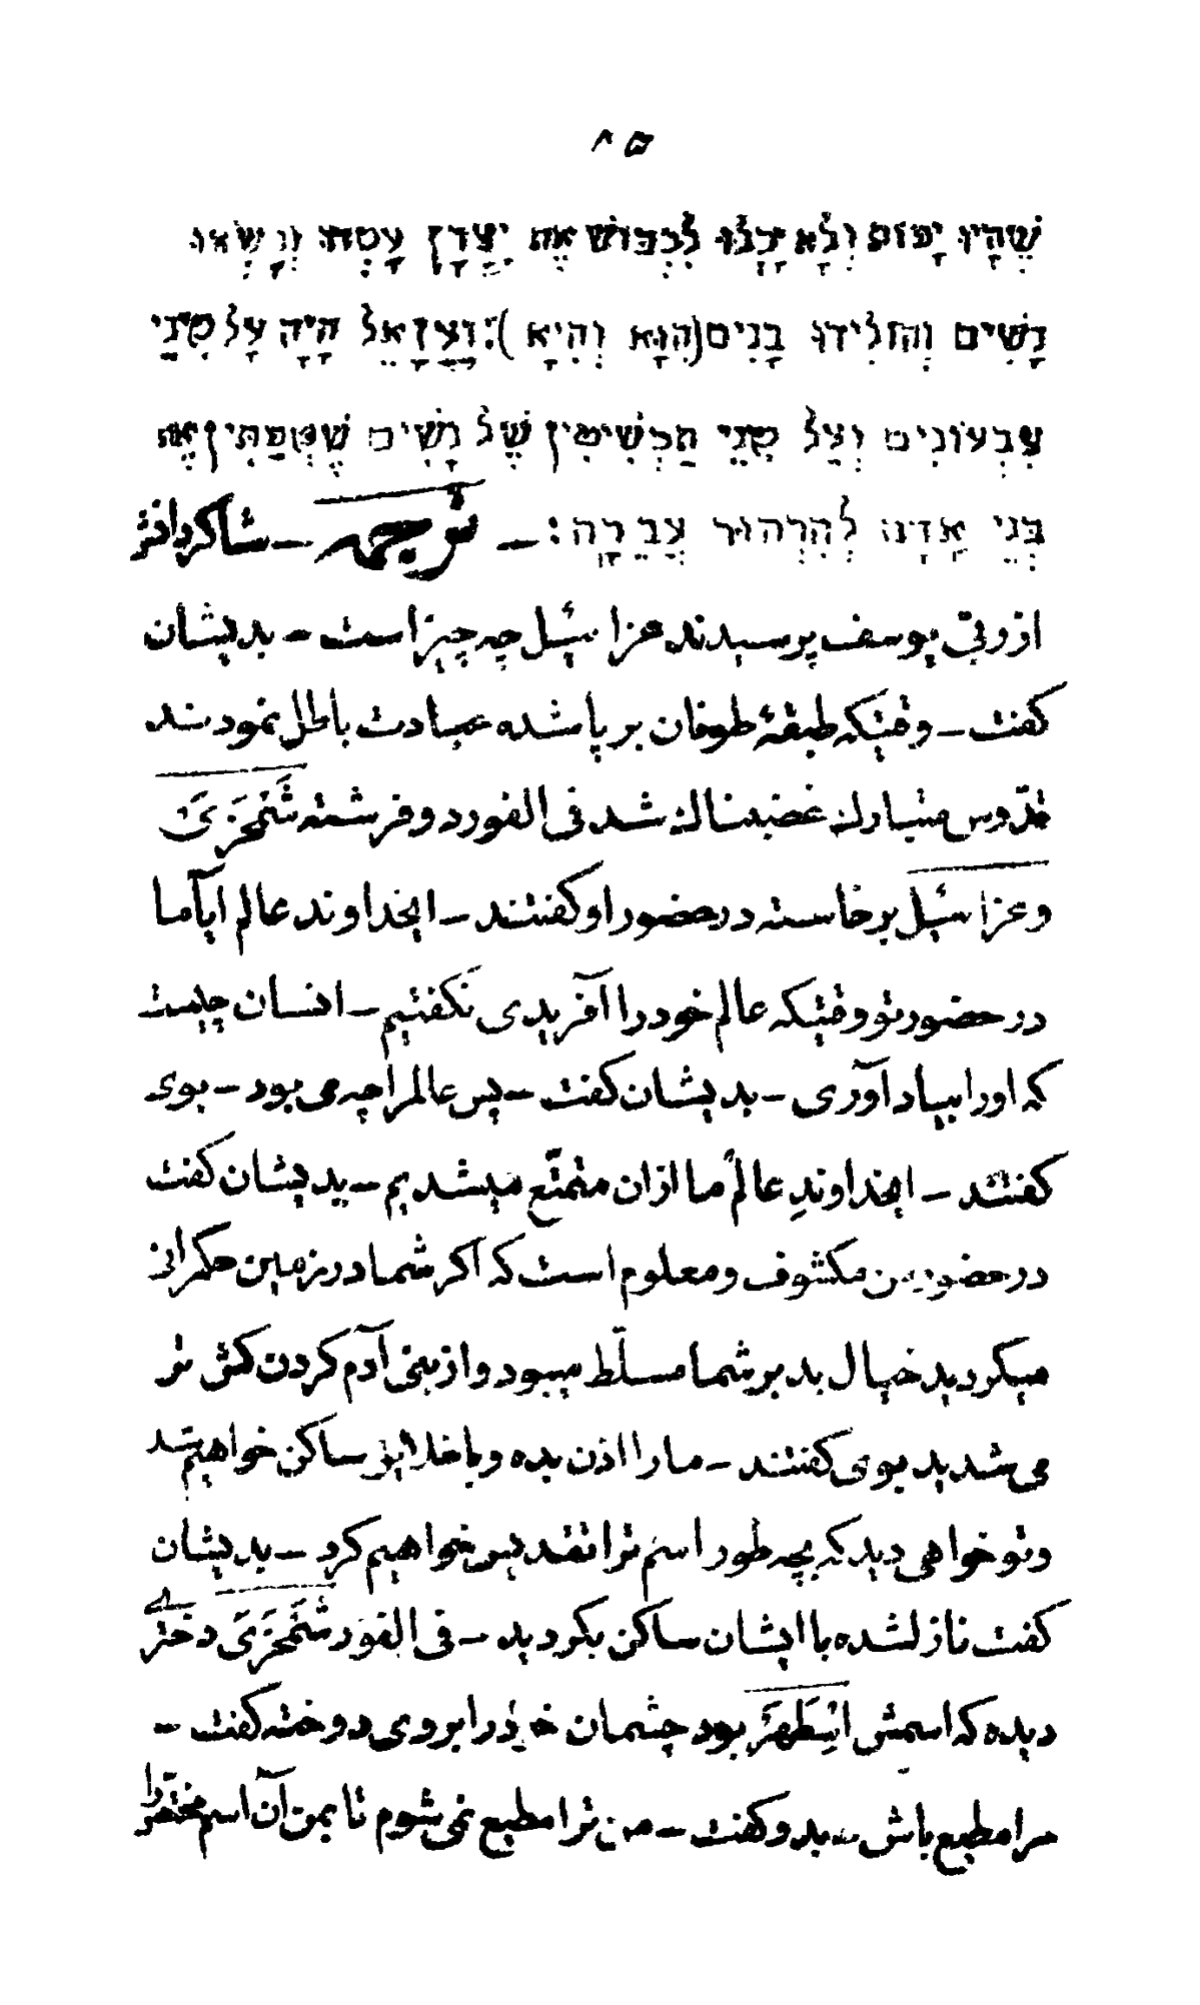 ۸۵
שֶׁהָיוּ יָפוֹת וְלָא יָכְלוּ לִכְבּוֹשׁ אֶת יִצְרָן עָמְדוּ וְנָשְׂאוּ
נָשִׁים וְהוֹלִידוּ בָנִים (הִוָּא וְהִיָא): וַעֲזָאֵל הָיָה עַל מִינֵי
צִבְעוֹנִים וְעַל מִנֵי תַכְשִׁיטִין שֶׁל נָשִׁים שֶׁמְּפַתִּין אֶת
בְּנֵי אָדָם לְהִרְהוּר עֲבֵרָה: ــ ترجمه ــ شاکردانش
از ربی یوسف پرسیدند عزائیل چه چیز است ــ بدیشان
کفت ــ وقتیکه طبقهٔ طوفان برپا شده عبادت باطل نمودند
قدّوس متبارک غضبناک شد فی الفور دو فرشته شَمْحَزَیَ
وعزائیل برخاسته در حضور او کفتند ــ ایخداوند عالم ایآما
در حضور تو وقتیکه عالم خود را آفریدی نکفتیم ــ انسان چیست
که اورا بیاد آوری ــ بدیشان کفت ــ پس عالمرا چه می بود ــ بوی
کفتند ــ ایخداوندِ عالم ما ازان متمتّع میشدیم ــ بدیشان کفت
در حضور من مکشوف و معلوم است که اکر شما در زمین حکمرانی
میکردید خیال بد بر شما مسلّط میبود و از بنی آدم کردن کش تر
می شدید بوی کفتند ــ مارا اذن بده و با خلایق ساکن خواهیم شد
وتو خواهی دید که بچه طور اسم ترا تقدیس خواهیم کرد ــ بدیشان
کفت نازلشده با ایشان ساکن بکردید ــ فی الفور شَمْحَزَیَ دختری
دیده که اسمش اِیسِطَهَرْ بود چشمان خود را بروی دوخته کفت ــ
مرا مطیع باش ــ بدو کفت ــ من ترا مطیع نمی شوم تا بمن آن اسم مختصّ را